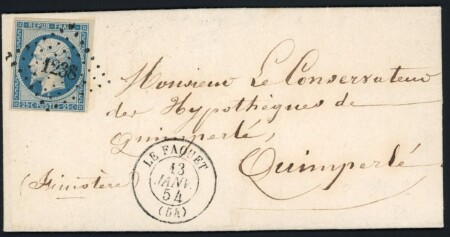 REPUB. FRANC.
1238
25 C. POSTES 25 C.
Monsieur Le Conservateur
des Hypothèques de
Quimperlé,
Quimperlé
(Finistère)
LE FAOUET
13
JANV.
54
(54)